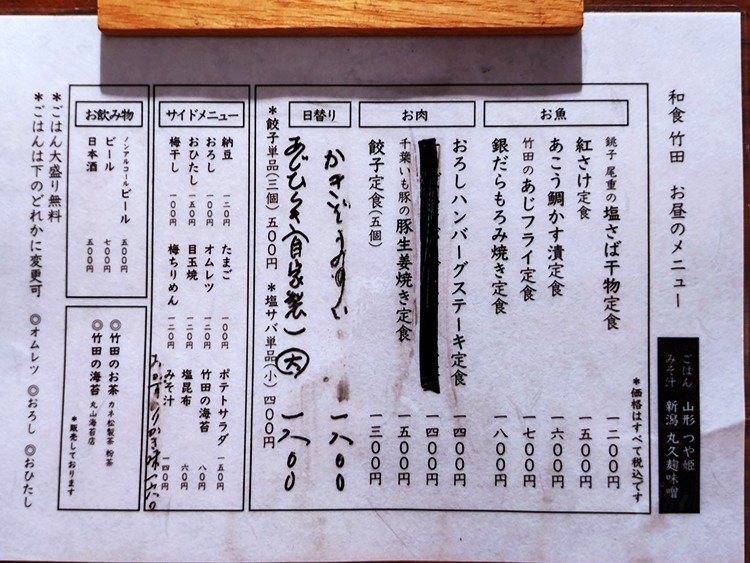 和食 竹田　お昼のメニュー
ごはん　山形 つや姫
みそ汁　新潟 丸久麹味噌
＊価格はすべて税込です
お魚
銚子 尾重の塩さば干物定食　一二〇〇円
紅さけ定食　一五〇〇円
あこう鯛かす漬定食　一六〇〇円
竹田のあじフライ定食　一七〇〇円
銀だらもろみ焼き定食　一八〇〇円
お肉
おろしハンバーグステーキ定食　一四〇〇円
一四〇〇円
千葉いも豚の豚生姜焼き定食　一五〇〇円
餃子定食（五個）　一三〇〇円
日替り
一八〇〇
あじひらき（自家製）大　一八〇〇
＊餃子単品（三個）五〇〇円　＊塩サバ単品（小）四〇〇円
サイドメニュー
納豆　一二〇円　たまご　一〇〇円　ポテトサラダ　一五〇円
おろし　一〇〇円　オムレツ　一二〇円　竹田の海苔　八〇円
おひたし　一五〇円　目玉焼　一二〇円　塩昆布　六〇円
梅干し　一〇〇円　梅ちりめん　一二〇円　みそ汁　一四〇円
お飲み物
ノンアルコールビール　五〇〇円
ビール　七〇〇円
日本酒　五〇〇円
◎竹田のお茶　カネ松製茶 粉茶
◎竹田の海苔　丸山海苔店
＊販売しております
＊ごはん大盛り無料
＊ごはんは下のどれかに変更可　◎オムレツ　◎おろし　◎おひたし